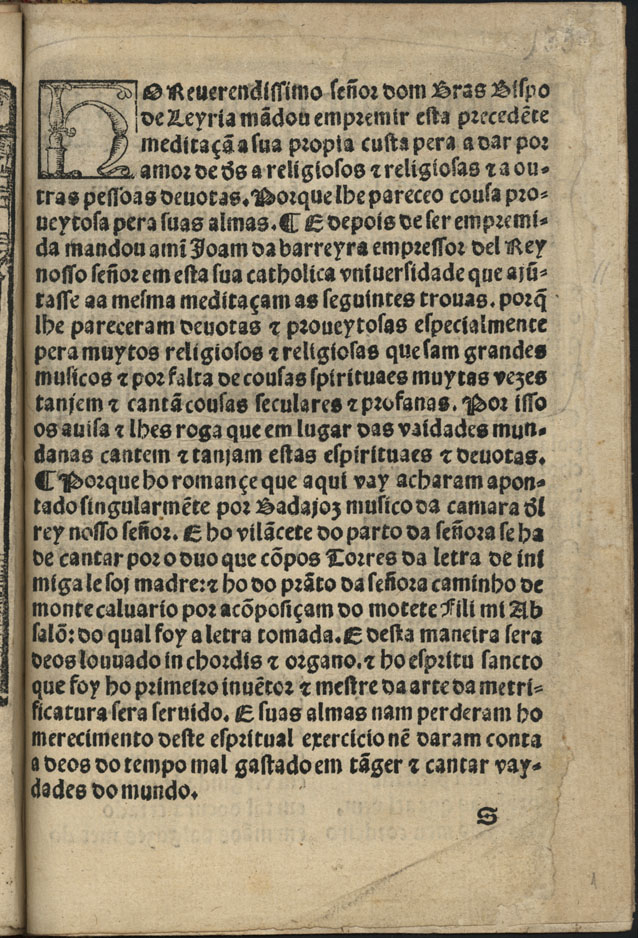 HO Reuerendissimo señor dom Bras Bispo
de Leyria mãdou empremir esta precedẽte
meditaçã a sua propia custa pera a dar por
amor de d̃s a religiosos ⁊ religiosas ⁊ a ou-
tras pessoas deuotas. Porque lhe pareceo cousa pro-
ueytosa pera suas almas. ¶ E depois de ser empremi-
da mandou a mĩ Joam da barreyra empressor del Rey
nosso señor em esta sua catholica vniuersidade que ajũ-
tasse aa mesma meditaçam as seguintes trouas. porq̃
lhe pareceram deuotas ⁊ proueytosas especialmente
pera muytos religiosos ⁊ religiosas que sam grandes
musicos ⁊ por falta de cousas spirituaes muytas vezes
tanjem ⁊ cantã cousas seculares ⁊ profanas. Por isso
os auisa ⁊ lhes roga que em lugar das vaidades mun-
danas cantem ⁊ tanjam estas espirituaes ⁊ deuotas.
¶ Porque ho romançe que aqui vay acharam apon-
tado singularmẽte por Badajoz musico da camara d̃l
rey nosso señor. E ho vilãcete do parto da señora se ha
de cantar por o duo que cõpos Torres da letra de ini
miga le soj madre: ⁊ ho do prãto da señora caminho de
monte caluario por a cõposiçam do motete Fili mi Ab
salõ: do qual foy a letra tomada. E desta maneira sera
deos louuado in chordis ⁊ organo. ⁊ ho espritu sancto
que foy ho primeiro inuẽtor ⁊ mestre da arte da metri-
ficatura sera seruido. E suas almas nam perderam ho
merecimento deste espritual exercicio nẽ daram conta
a deos do tempo mal gastado em tãger ⁊ cantar vay-
dades do mundo.
S